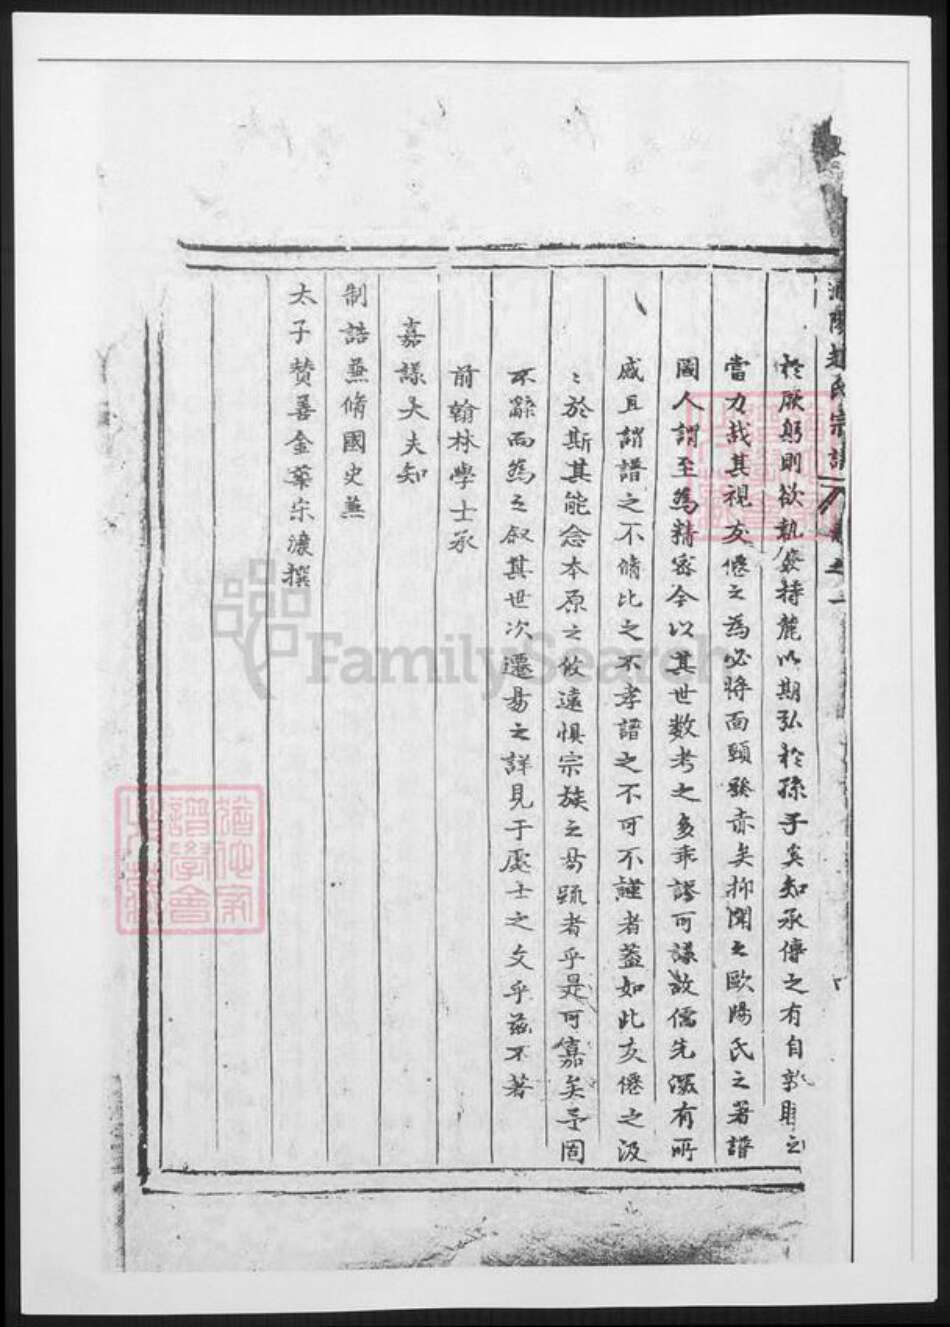 趙氏宗譜 卷之一
於厥躬則欲執發持龍以期弘於孫子奚知承傳之有自
當力哉其視友僊之為必將面頸發赤矣抑聞之歐陽氏之著譜
國人謂至為精密今以其世數考之多乖謬可議故儒先深有所
感且謂譜之不脩比之不孝譜之不可不謹者蓋如此友僊之汲
〻於斯其能念本原之攸遠惧宗族之易疏者乎是可嘉矣予固
不辭而為之叙其世次遷易之詳見于處士之文乎茲不著
前翰林學士承
嘉議大夫知
制誥兼脩國史兼
太子贊善金華宋濂撰
譜學會
FamilySearch